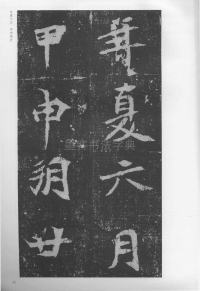 夏六月
甲申朔廿
書法字典